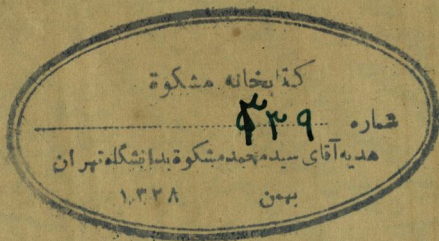 کتابخانه مشکوة
شماره ۳۳۹
هدیه آقای سید محمد مشکوة بدانشگاه تهران
بهمن ۱۳۲۸